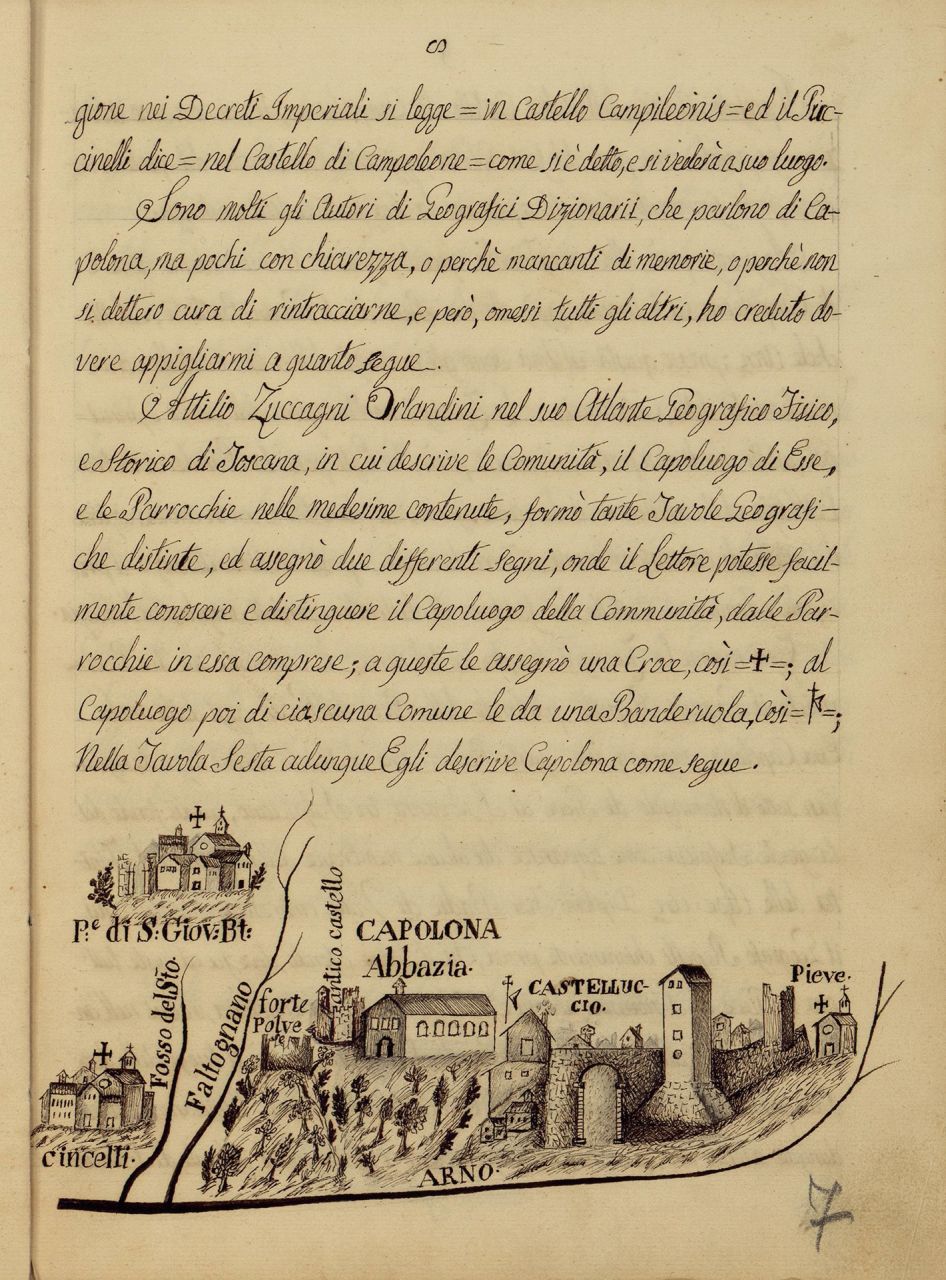 8
gione nei Decreti Imperiali si legge = in Castello Campileonis = ed il Puc-
cinelli dice = nel Castello di Campoleone = come si è detto, e si vederà a suo luogo.
Sono molti gli Autori di Geografici Dizionarii, che parlono di Ca-
polona, ma pochi con chiarezza, o perchè mancanti di memorie, o perchè non
si dettero cura di rintracciarne, e però, omessi tutti gli altri, ho creduto do-
vere appigliarmi a quanto segue.
Attilio Zuccagni Orlandini nel suo Atlante Geografico Fisico,
e Storico di Toscana, in cui descrive le Comunità, il Capoluogo di Esse,
e le Parrocchie nelle medesime contenute, formò tante Tavole Geografi-
che distinte, ed assegnò due differenti segni, onde il Lettore potesse facil-
mente conoscere e distinguere il Capoluogo della Communità, dalle Par-
rocchie in essa comprese; a queste le assegnò una Croce, così = ✝ =; al
Capoluogo poi di ciascuna Comune le da una Banderuola, così = =;
Nella Tavola Sesta adunque Egli descrive Capolona come segue.
P.e di S. Giov: Bt:
Fosso del Sto.
Faltognano
antico castello
CAPOLONA
Abbazia.
forte
Polve
CASTELLUC-
CIO.
Pieve.
cincelli.
ARNO.
7